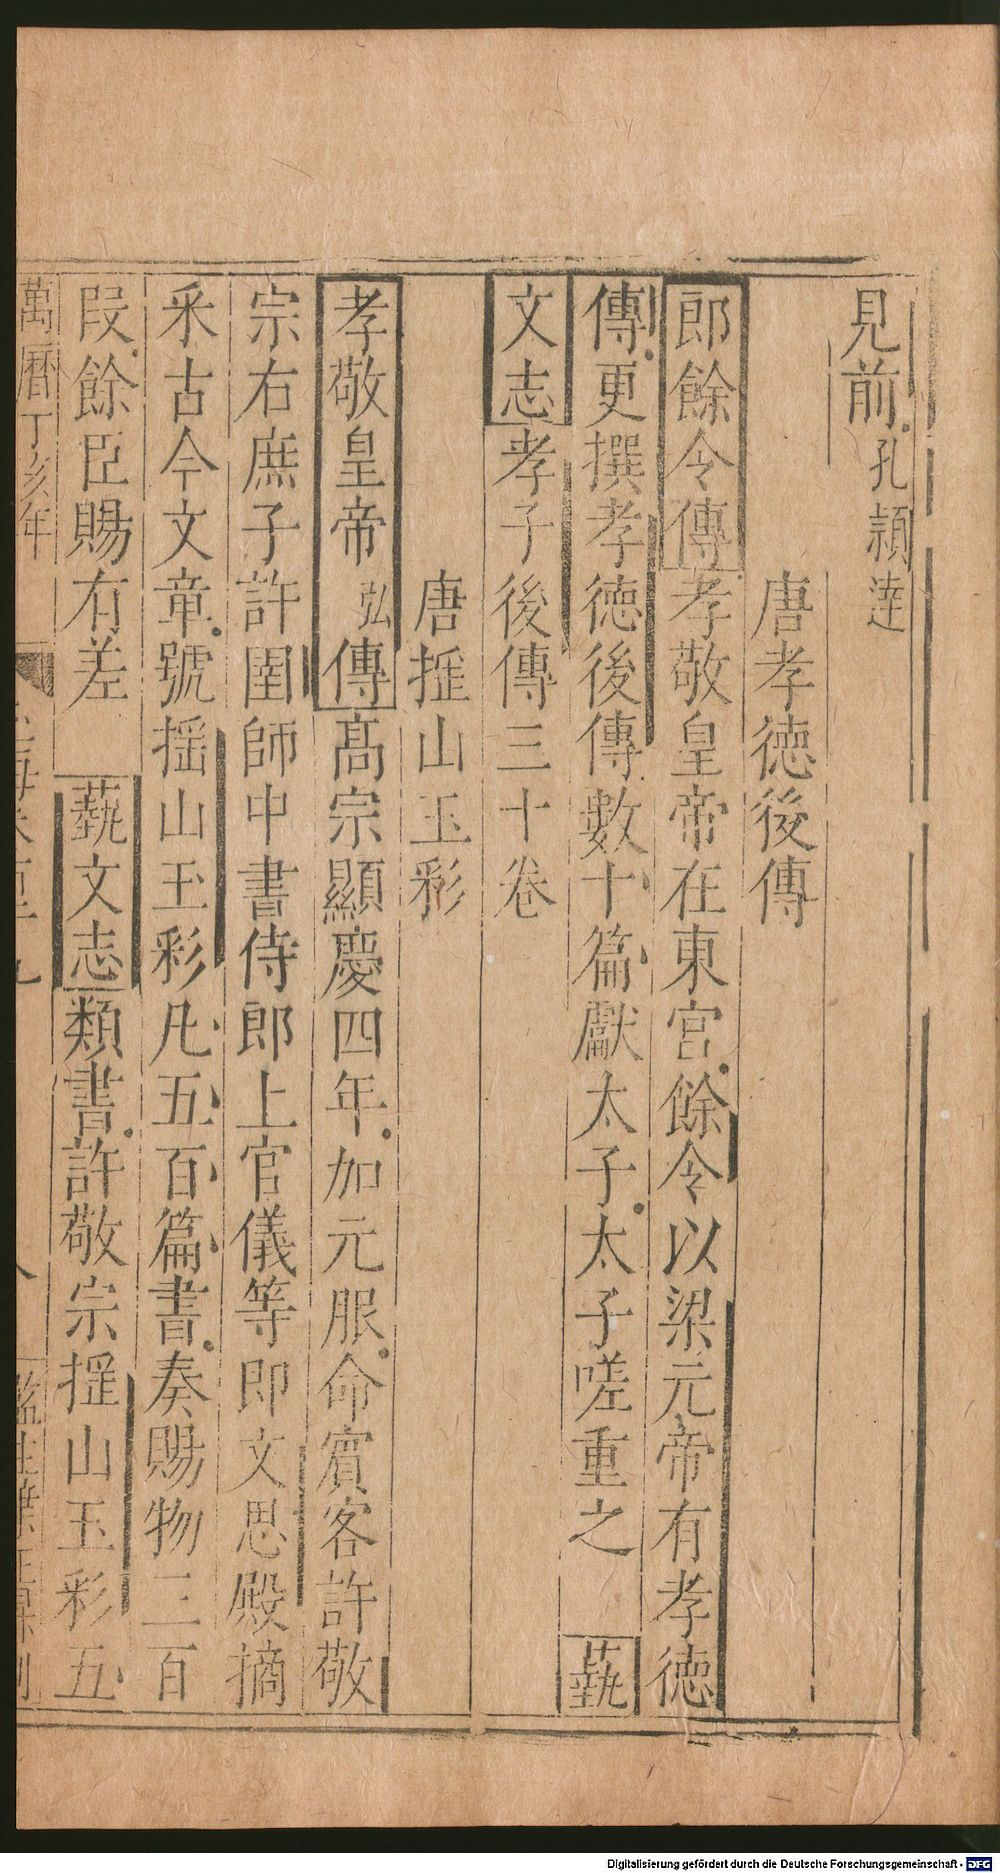 見前孔頴逹
唐孝德後傳
郎餘令傳孝敬皇帝在東宮餘令以梁元帝有孝德
傳更撰孝德後傳數十篇獻太子太子嗟重之 藝
文志孝子後傳三十卷
唐揺山玉彩
孝敬皇帝弘傳髙宗顯慶四年加元服命賓客許敬
宗右庶子許圉師中書侍郎上官儀等即文思殿摘
采古今文章號揺山玉彩凡五百篇書奏賜物三百
段餘臣賜有差 藝文志類書許敬宗揺山玉彩五
萬曆丁亥年
Digitalisierung gefördert durch die Deutsche Forschungsgemeinschaft - DFG